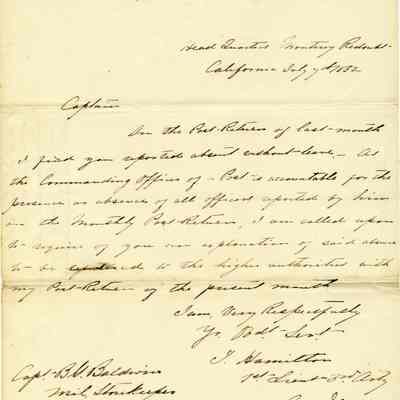 Head Quarters Monterey Redoubt
California July 7th 1852
Captain
On the Post Return of last month
I find you reported absent without leave. As
the Commanding Officer of a Post is accountable for the
presence or absence of all officers reported by him
on the Monthly Post Return, I am called upon
to require of you an explanation of said absence
to be rendered to the higher authorities with
my Post Return of the present month
I am, Very Respectfully
Yr. Obdt. Servt.
J. Hamilton
1st Lieut 3rd Arty
Capt. B. Baldwin
Mil. Storekeeper